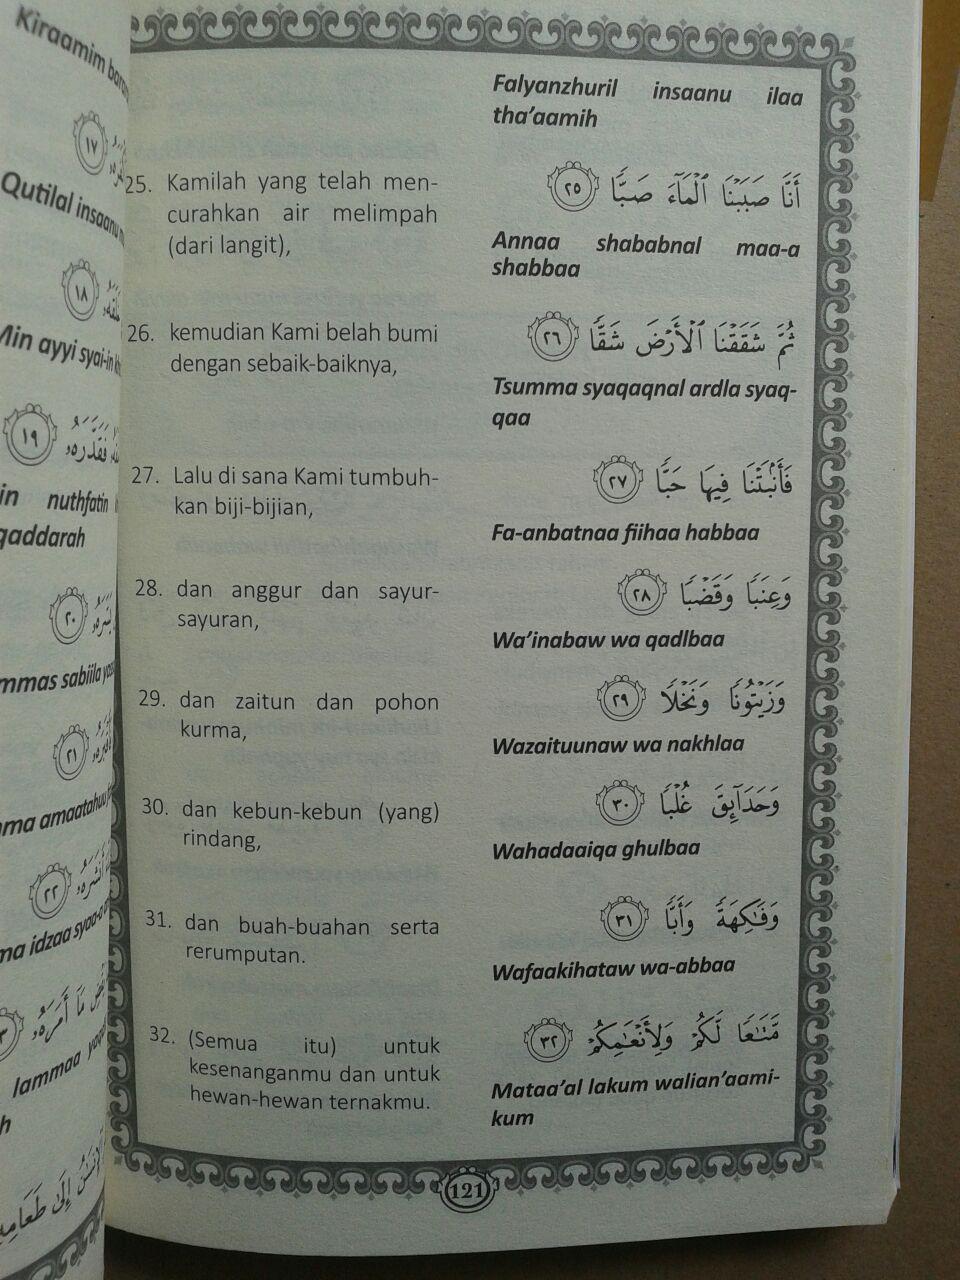 Kiraamim
١٧
Qutilal insaanu
١٨
Min ayyi syai-in
١٩ فَقَدَّرَهُۥ
nuthfatin
qaddarah
٢٠
sabiila
٢١
amaatahuu
٢٢ أَنشَرَهُۥ
idzaa syaa-a
مَآ أَمَرَهُۥ
lammaa
إِلَىٰ طَعَامِهِۦٓ
Falyanzhuril insaanu ilaa
tha'aamih
25. Kamilah yang telah men-
curahkan air melimpah
(dari langit),
أَنَّا صَبَبْنَا ٱلْمَآءَ صَبًّا ٢٥
Annaa shababnal maa-a
shabbaa
26. kemudian Kami belah bumi
dengan sebaik-baiknya,
ثُمَّ شَقَقْنَا ٱلْأَرْضَ شَقًّا ٢٦
Tsumma syaqaqnal ardla syaq-
qaa
27. Lalu di sana Kami tumbuh-
kan biji-bijian,
فَأَنۢبَتْنَا فِيهَا حَبًّا ٢٧
Fa-anbatnaa fiihaa habbaa
28. dan anggur dan sayur-
sayuran,
وَعِنَبًا وَقَضْبًا ٢٨
Wa'inabaw wa qadlbaa
29. dan zaitun dan pohon
kurma,
وَزَيْتُونًا وَنَخْلًا ٢٩
Wazaituunaw wa nakhlaa
30. dan kebun-kebun (yang)
rindang,
وَحَدَآئِقَ غُلْبًا ٣٠
Wahadaaiqa ghulbaa
31. dan buah-buahan serta
rerumputan.
وَفَٰكِهَةً وَأَبًّا ٣١
Wafaakihataw wa-abbaa
32. (Semua itu) untuk
kesenanganmu dan untuk
hewan-hewan ternakmu.
مَّتَٰعًا لَّكُمْ وَلِأَنْعَٰمِكُمْ ٣٢
Mataa'al lakum walian'aami-
kum
121